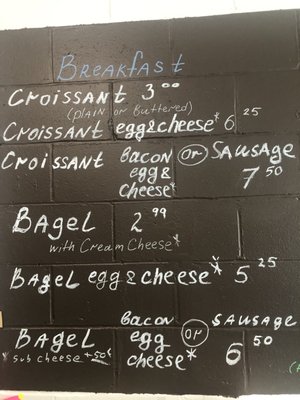 BREAKFAST
CROISSANT 3.00
(PLAIN OR Buttered)
CROISSANT egg&cheese* 6.25
CROISSANT bacon OR SAUSAGE
egg&
cheese* 7.50
BAGEL 2.99
with Cream Cheese*
BAGEL egg&cheese* 5.25
BAGEL bacon OR SAUSAGE
egg
cheese* 6.50
* sub cheese +50¢